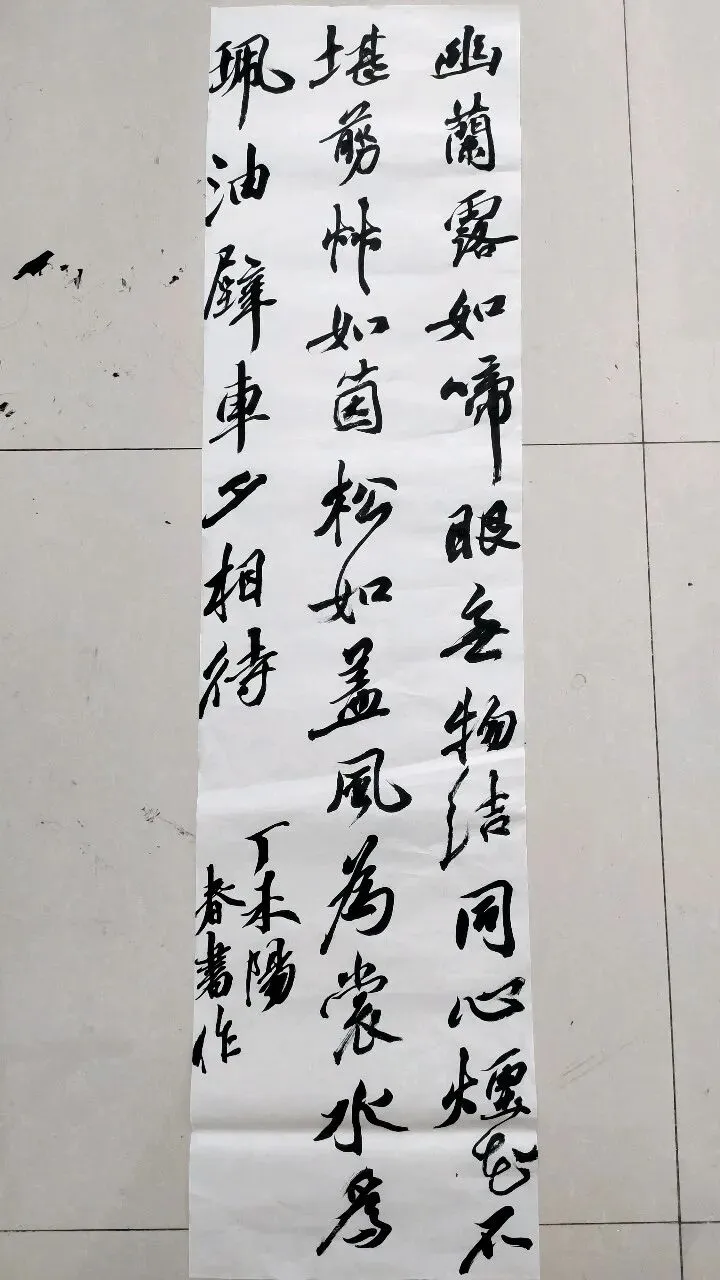 幽蘭露如啼眼無物結同心煙花不
堪剪草如茵松如蓋風為裳水為
珮油壁車夕相待
丁未陽
春書作